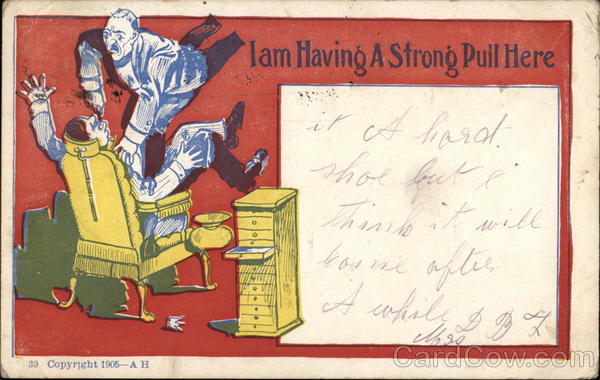 I am Having A Strong Pull Here
it A hard
shoe but i
think it will
come after
A while D B L
Mrs
39 Copyright 1905—A H
CardCow.com